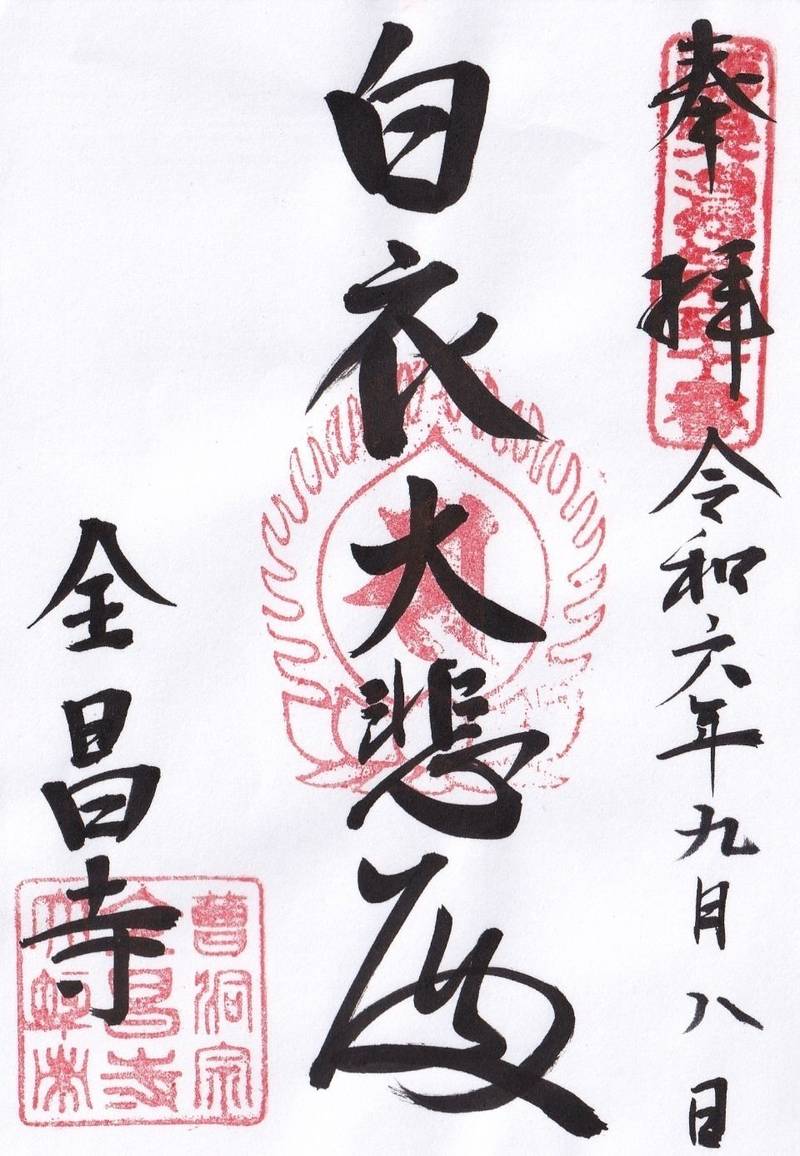 奉拝
令和六年九月八日
白衣大悲殿
全昌寺
曹洞宗
全昌寺